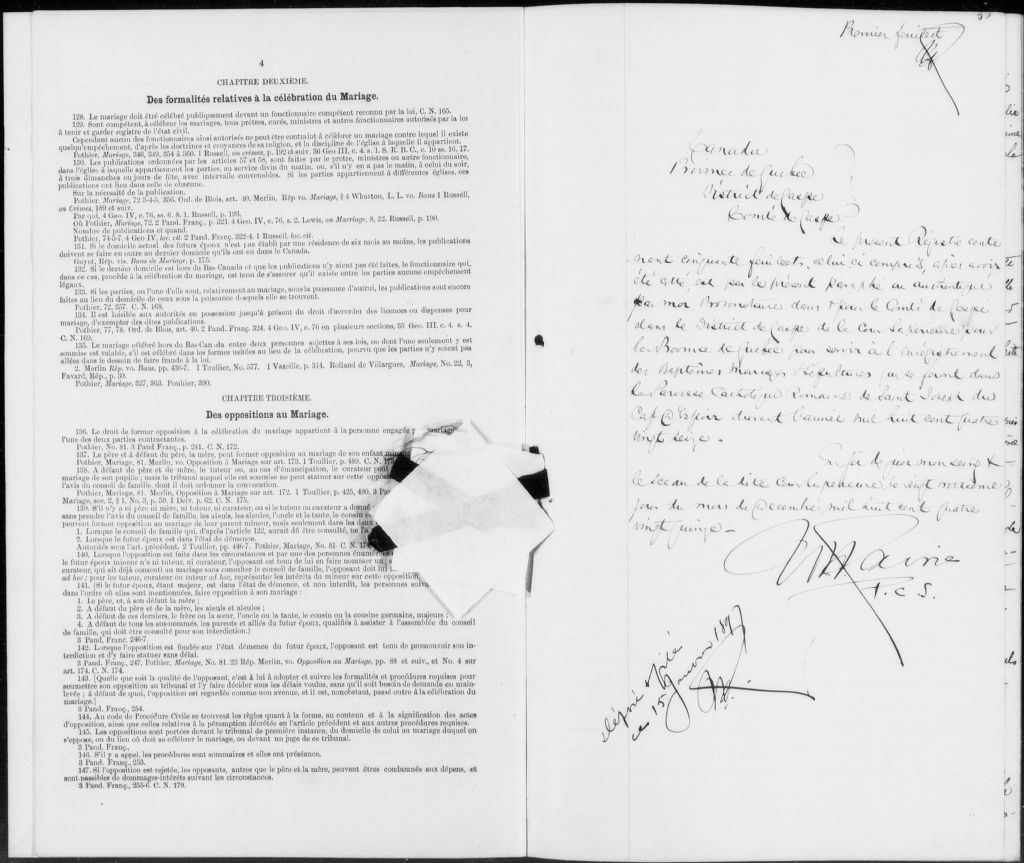 4
CHAPITRE DEUXIÈME.
Des formalités relatives à la célébration du Mariage.
128. Le mariage doit être célébré publiquement devant un fonctionnaire compétent reconnu par la loi. C. N. 165.
129. Sont compétent, à célébrer les mariages, tous prêtres, curés, ministres et autres fonctionnaires autorisés par la loi
à tenir et garder registre de l'état civil.
Cependant aucun des fonctionnaires ainsi autorisés ne peut être contraint à célébrer un mariage contre lequel il existe
quelqu'empêchement, d'après les doctrines et croyances de sa religion, et la discipline de l'église à laquelle il appartient.
Pothier, Mariage, 346, 349, 354 à 360. 1 Russell, on crimes, p. 192 et suiv. 36 Geo III, c. 4. s. 1. S. R. B. C., c. 10 ss. 16, 17.
130. Les publications ordonnées par les articles 57 et 58, sont faites par le prêtre, ministres ou autre fonctionnaire,
dans l'église à laquelle appartiennent les parties, au service divin du matin, ou, s'il n'y en a pas le matin, à celui du soir,
à trois dimanches ou jours de fête, avec intervalle convenables. Si les parties appartiennent à différentes églises, ces
publications ont lieu dans celle de chacune.
Sur la nécessité de la publication.
Pothier, Mariage, 72 3-4-5, 356. Ord. de Blois, art. 40. Merlin, Rép vo. Mariage, § 4 Wharton, L. L. vo. Bans 1 Russell,
on Crimes, 189 et suiv.
Par qui, 4 Geo. IV, c. 76, ss. 6. 8. 1. Russell, p. 193.
Où Pothier, Mariage, 72. 2 Pand. Franç., p. 321. 4 Geo. IV, c. 76, s. 2. Lewis, on Marriage, 8, 22. Russell, p. 190.
Nombre de publications et quand.
Pothier, 74-5-7. 4 Geo IV, loc. cit. 2 Pand. Franç. 322-4. 1 Russell. loc. cit.
131. Si le domicile actuel des futurs époux n'est pas établi par une résidence de six mois au moins, les publications
doivent se faire en outre au dernier domicile qu'ils ont eu dans le Canada.
Guyot, Rép. vis. Bans de Mariage, p. 175.
132. Si le dernier domicile est hors du Bas Canada et que les publications n'y aient pas été faites, le fonctionnaire qui,
dans ce cas, procède à la célébration du mariage, est tenu de s'assurer qu'il existe entre les parties aucune empêchement
légaux.
133. Si les parties, ou l'une d'elle sont, relativement au mariage, sous la puissance d'autrui, les publications sont encore
faites au lieu du domicile de ceux sous la puissance desquels elle se trouvent.
Pothier, 72, 357. C. N. 168.
134. Il est loisible aux autorités en possession jusqu'à présent du droit d'accorder des licences ou dispenses pour
mariage, d'exempter des dites publications.
Pothier, 77, 78. Ord. de Blois, art. 40. 2 Pand. Franç. 324. 4 Geo. IV, c. 76 en plusieurs sections, 35 Geo. III, c. 4. s. 4.
C. N. 169.
135. Le mariage célébré hors du Bas-Canada entre deux personnes sujettes à ses lois, ou dont l'une seulement y est
soumise est valable, s'il est célébré dans les formes usitées au lieu de la célébration, pourvu que les parties n'y soient pas
allées dans le dessein de faire fraude à la loi.
2. Merlin Rép. vo. Bans. pp. 436-7. 1 Toullier, No. 577. 1 Vazeille, p. 314. Rolland de Villargues, Mariage, No. 22, 3,
Favard, Rép., p. 50.
Pothier, Mariage, 327, 363. Pouhier, 390.
CHAPITRE TROISIÈME.
Des oppositions au Mariage.
136. Le droit de former opposition à la célébration du mariage appartient à la personne engagée p mariage
l'une des deux parties contractantes.
Pothier, No. 81. 3 Pand Franç., p. 241. C. N. 172.
137. Le père et à défaut du père, la mère, peut former opposition au mariage de son enfant mineur
Pothier, Mariage, 81. Merlin, vo. Opposition à Mariage sur art. 173. 1 Toullier, p. 489. C. N. 17
138. A défaut de père et de mère, le tuteur ou, au cas d'émancipation, le curateur peut
mariage de son pupille; mais le tribunal auquel elle est soumise ne peut statuer sur cette oppos
l'avis du conseil de famille, dont il doit ordonner la convocation.
Pothier, Mariage, 81. Merlin, Opposition à Mariage sur art. 172. 1 Toullier, p. 425, 490, 3 Pa
Mariage, sec, 2, § 1, No. 3, p. 59. 1 Delv. p. 62. C. N. 175.
139. S'il n'y a ni père ni mère, ni tuteur, ni curateur, ou si le tuteur ou curateur a donné
sans prendre l'avis du conseil de famille, les aïeuls, les aïeules, l'oncle et la tante, le cousin
peuvent former opposition au mariage de leur parent mineur, mais seulement dans les deux
1. Lorsque le conseil de famille qui, d'après l'article 122, aurait dû être consulté, ne l'a
2. Lorsque le futur époux est dans l'état de démence.
Autorités sous l'art. précédent. 2 Toullier, pp. 446-7. Pothier, Mariage, No. 81. C. N. 17
140. Lorsque l'opposition est faite dans les circonstances et par une des personnes énumér
le futur époux mineur n'a ni tuteur, ni curateur, l'opposant est tenu de lui en faire nommer un; s
curateur, qui ait déjà consenti au mariage sans consulter le conseil de famille, l'opposant doit lui
ad hoc; pour les tuteur, curateur ou tuteur ad hoc, représenter les intérêts du mineur sur cette opposition.
141. (Si le futur époux, étant majeur, est dans l'état de démence, et non interdit, les personnes suiva
dans l'ordre où elles sont mentionnées, faire opposition à son mariage:
1. Le père, et, à son défaut la mère;
2. A défaut du père et de la mère, les aïeuls et aïeules;
3. A défaut de ces derniers, le frère ou la sœur, l'oncle ou la tante, le cousin ou la cousine germains, majeurs;
4. A défaut de tous les sus-nommés, les parents et alliés du futur époux, qualifiés à assister à l'assemblée du conseil
de famille, qui doit être consulté pour son interdiction.)
3 Pand. Franc. 246-7.
142. Lorsque l'opposition est fondée sur l'état démence du futur époux, l'opposant est tenu de promouvoir son in-
terdiction et d'y faire statuer sans délai.
3 Pand. Franç., 247. Pothier, Mariage, No. 81. 22 Rép. Merlin, vo. Opposition au Mariage, pp. 88 et suiv., et No. 4 sur
art. 174. C. N. 174.
143. [Quelle que soit la qualité de l'opposant, c'est à lui à adopter et suivre les formalités et procédures requises pour
soumettre son opposition au tribunal et l'y faire décider sous les délais voulus, sans qu'il soit besoin de demande en main-
levée; à défaut de quoi, l'opposition est regardée comme non avenue, et il est, nonobstant, passé outre à la célébration du
mariage.]
3 Pand. Franç., 254.
144. Au code de Procédure Civile se trouvent les règles quant à la forme, au contenu et à la signification des actes
d'opposition, ainsi que celles relatives à la péremption décrétée en l'article précédent et aux autres procédures requises.
145. Les oppositions sont portées devant le tribunal de première instance, du domicile de celui au mariage duquel on
s'oppose, ou du lieu où doit se célébrer le mariage, ou devant un juge de ce tribunal.
3 Pand. Franç.,
146. S'il y a appel, les procédures sont sommaires et elles ont préséance.
3 Pand. Franç., 253.
147. Si l'opposition est rejetée, les opposants, autres que le père et la mère, peuvent être condamnés aux dépens, et
sont passibles de dommages-intérêts suivant les circonstances.
3 Pand. Franç., 255-6. C. N. 179.
Premier feuillet
Canada
Province de Quebec
District de Gaspé
Comté de Gaspé
Le présent Régistre conte
nant cinquante feuillets, celui ci compris, après avoir
été coté, est par les présent paraphé et authentiqué
par moi Protonotaire dans & pour le Comté de Gaspé
dans le District de Gaspé de la Cour Supérieure pour
la Province de Quebec pour servir à l'enregistrement
des Baptêmes Mariages & Sépultures qui se feront dans
la Paroisse Catholique Romaine de Saint Joseph du
Cap d'Espoir durant l'année mil huit cent quatre
vingt seize.
En foi de quoi mon seing &
le Sceau de la dite Cour Supérieure, le vingt troisième
jour du mois de Décembre, mil huit cent quatre
vingt quinze –
P. C. S.
Déposé & filé
ce 15 Janvier 1897